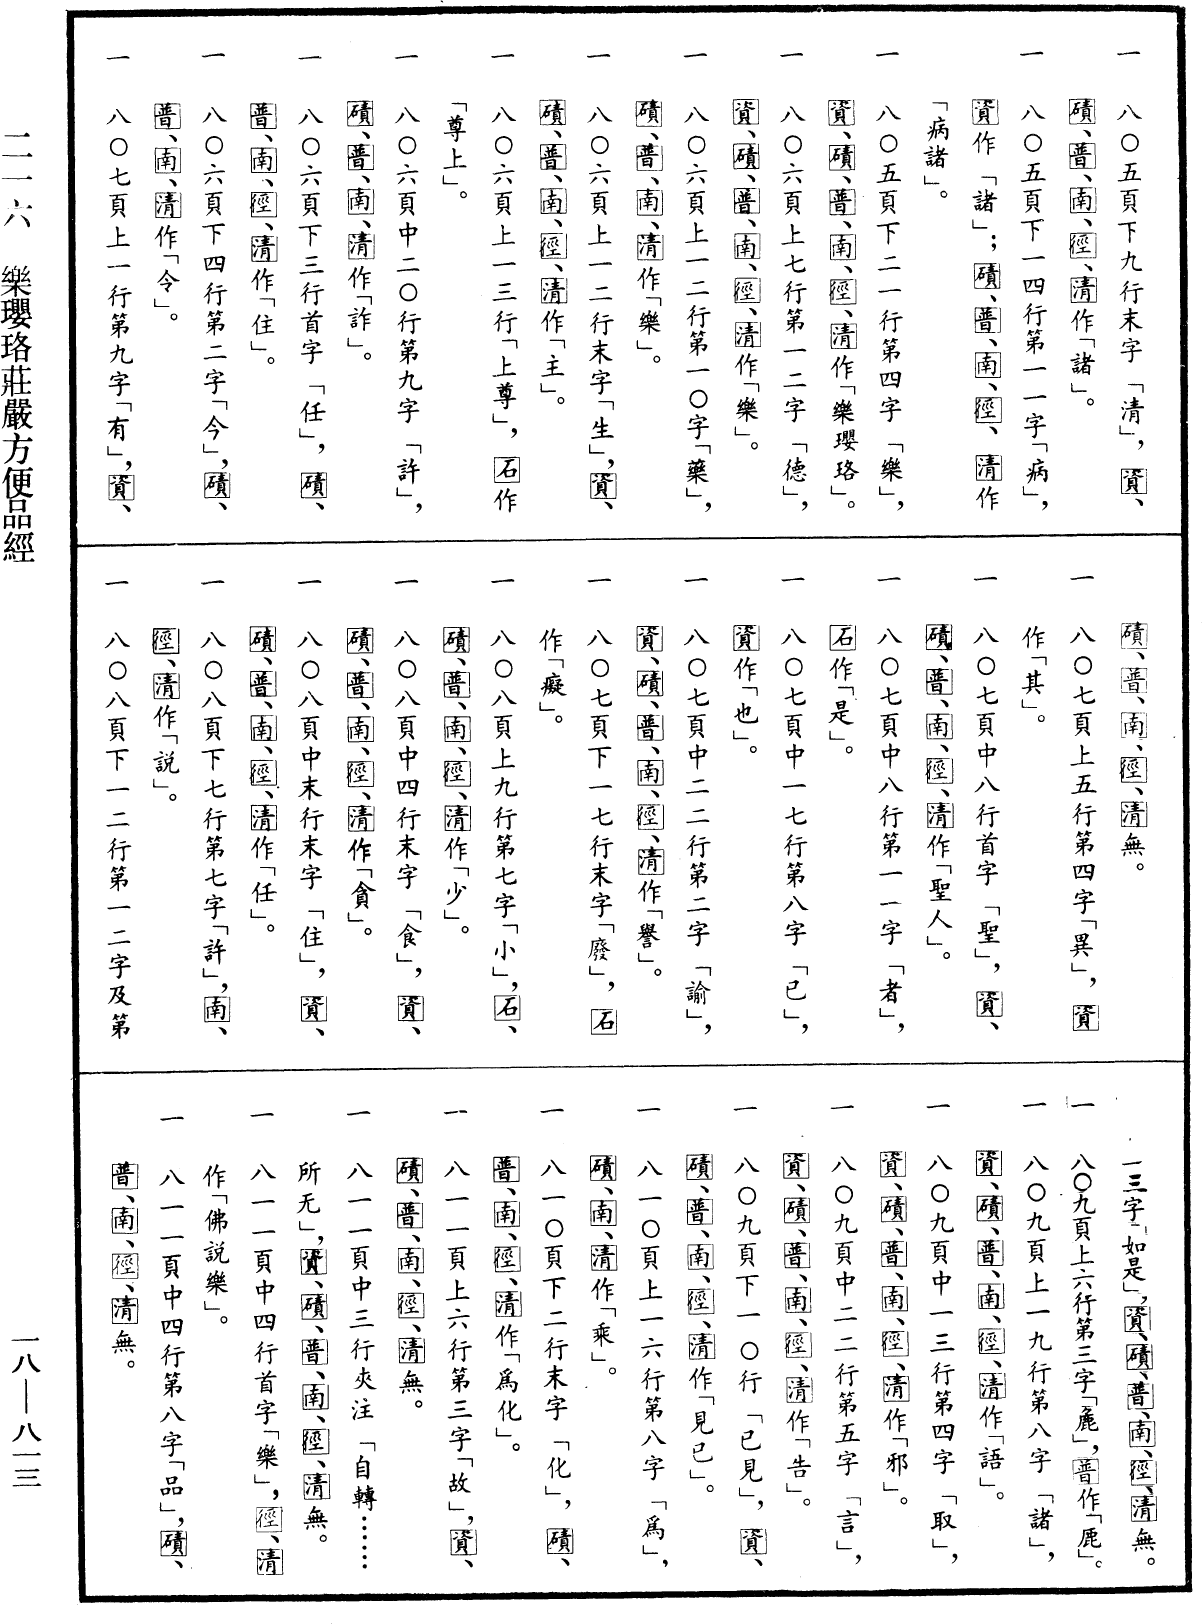 一　八〇五頁下九行末字「清」，資、
磧、普、南、徑、清作「諸」。
一　八〇五頁下一四行第一一字「病」，
資作「諸」；磧、普、南、徑、清作
「病諸」。
一　八〇五頁下二一行第四字「樂」，
資、磧、普、南、徑、清作「樂瓔珞」。
一　八〇六頁上七行第一二字「德」，
資、磧、普、南、徑、清作「樂」。
一　八〇六頁上一二行第一〇字「藥」，
磧、普、南、清作「樂」。
一　八〇六頁上一二行末字「生」，資、
磧、普、南、徑、清作「主」。
一　八〇六頁上一三行「上尊」，石作
「尊上」。
一　八〇六頁中二〇行第九字「許」，
磧、普、南、清作「詐」。
一　八〇六頁下三行首字「任」，磧、
普、南、徑、清作「住」。
一　八〇六頁下四行第二字「今」，磧、
普、南、清作「令」。
一　八〇七頁上一行第九字「有」，資、
磧、普、南、徑、清無。
一　八〇七頁上五行第四字「異」，資
作「其」。
一　八〇七頁中八行首字「聖」，資、
磧、普、南、徑、清作「聖人」。
一　八〇七頁中八行第一一字「者」，
石作「是」。
一　八〇七頁中一七行第八字「已」，
資作「也」。
一　八〇七頁中二二行第二字「諭」，
資、磧、普、南、徑、清作「譽」。
一　八〇七頁下一七行末字「廢」，石
作「癡」。
一　八〇八頁上九行第七字「小」，石、
磧、普、南、徑、清作「少」。
一　八〇八頁中四行末字「食」，資、
磧、普、南、徑、清作「貪」。
一　八〇八頁中末行末字「住」，資、
磧、普、南、徑、清作「任」。
一　八〇八頁下七行第七字「許」，南、
徑、清作「説」。
一　八〇八頁下一二行第一二字及第
一三字「如是」，資、磧、普、南、徑、清無。
一　八〇九頁上六行第三字「麁」，普作「鹿」。
一　八〇九頁上一九行第八字「諸」，
資、磧、普、南、徑、清作「語」。
一　八〇九頁中一三行第四字「取」，
資、磧、普、南、徑、清作「邪」。
一　八〇九頁中二二行第五字「言」，
資、磧、普、南、徑、清作「告」。
一　八〇九頁下一〇行「已見」，資、
磧、普、南、徑、清作「見已」。
一　八一〇頁上一六行第八字「爲」，
磧、南、清作「乘」。
一　八一〇頁下二行末字「化」，磧、
普、南、徑、清作「爲化」。
一　八一一頁上六行第三字「故」，資、
磧、普、南、徑、清無。
一　八一一頁中三行夾注「自轉……
所无」，資、磧、普、南、徑、清無。
一　八一一頁中四行首字「樂」，徑、清
作「佛説樂」。
一　八一一頁中四行第八字「品」，磧、
普、南、徑、清無。
二一六　樂瓔珞莊嚴方便品經
一八—八一三